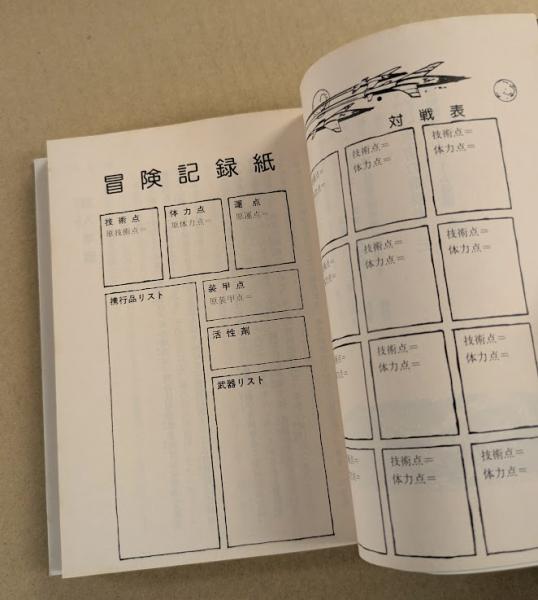 冒険記録紙
技術点
原技術点＝
体力点
原体力点＝
運点
原運点＝
携行品リスト
装甲点
原装甲点＝
活性剤
武器リスト
対戦表
技術点＝
体力点＝
技術点＝
体力点＝
技術点＝
体力点＝
技術点＝
体力点＝
技術点＝
体力点＝
技術点＝
体力点＝
技術点＝
体力点＝
技術点＝
体力点＝